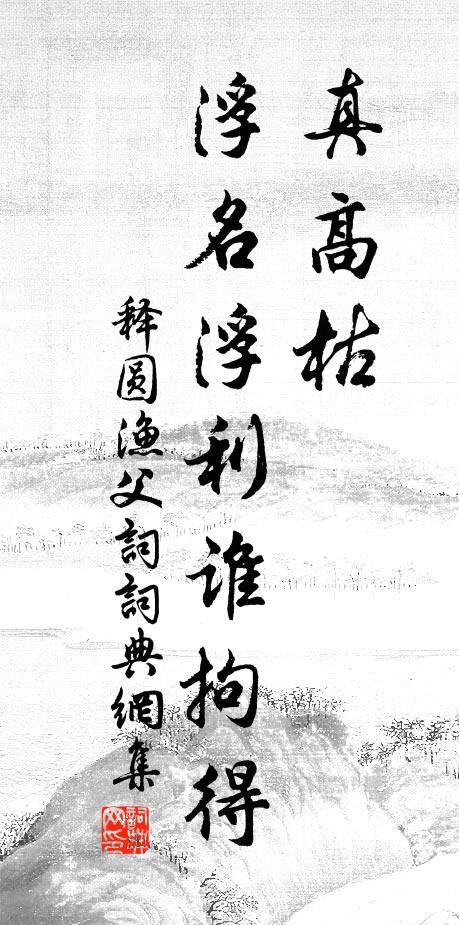 真高枯
浮名浮利谁拘得
释圆渔父詞詞典網集